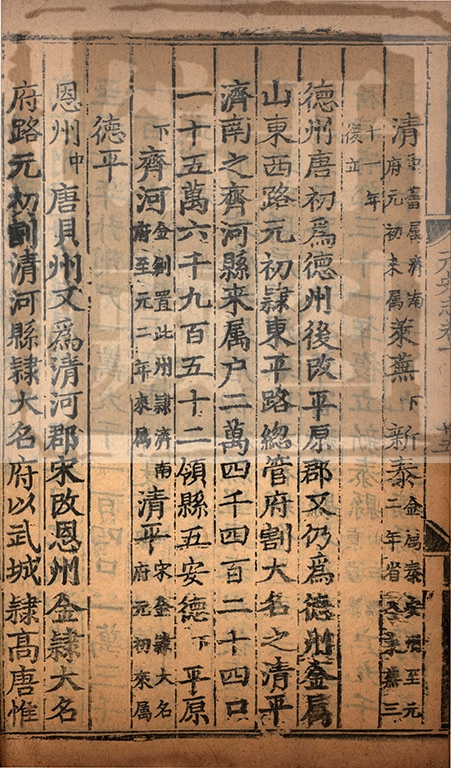 清中舊属濟南府元初來属萊蕪下新泰金属泰安州至元二年省入萊蕪三
十一年復立
德州唐初爲德州後改平原郡又仍爲德州金属
山東西路元初隷東平路總管府割大名之清平
濟南之齊河縣来属户二萬四千四百二十四口
一十五萬六千九百五十二領縣五安德下平原
下齊河金創置此州隷濟南府至元二年來属清平宋金隷大名府元初來属
德平
恩州中唐貝州又爲清河郡宋改恩州金隷大名
府路元初割清河縣隷大名府以武城隷高唐惟